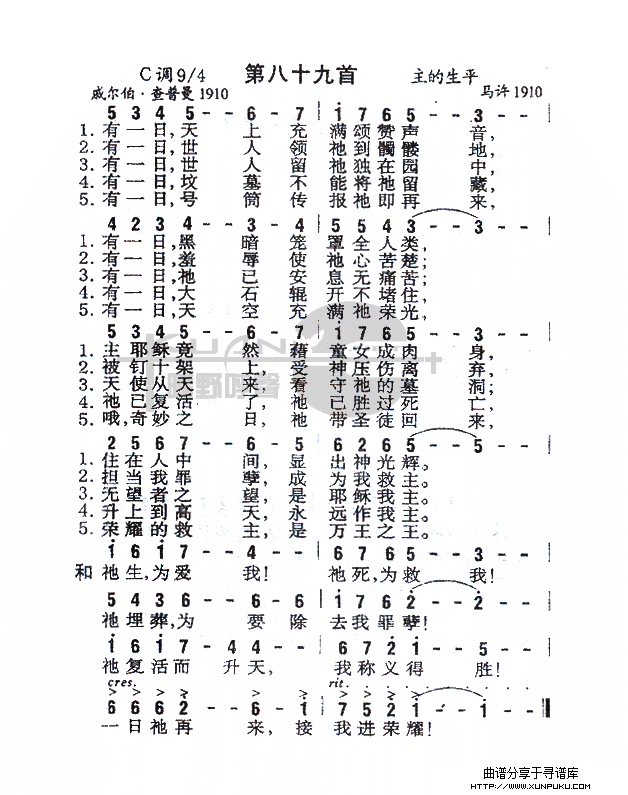 C调9/4 第八十九首 主的生平
威尔伯·查普曼1910 马许1910
5 3 4 5 - - 6 - 7 | i 7 6 5 - - 3 - -
1. 有一日,天 上 充 满颂赞声 音,
2. 有一日,世 人 领 祂到髑髅 地,
3. 有一日,世 人 留 祂独在园 中,
4. 有一日,坟 墓 不 能将祂留 藏,
5. 有一日,号 筒 传 报祂即再 来,
4 2 3 4 - - 3 - 4 | 5 5 4 3 - - 3 - -
1. 有一日,黑 暗 笼 罩全人类,
2. 有一日,羞 辱 使 祂心苦楚;
3. 有一日,祂 已 安 息无痛苦;
4. 有一日,大 石 辊 开不堵住,
5. 有一日,天 空 充 满祂荣光,
5 3 4 5 - - 6 - 7 | i 7 6 5 - - 3 - -
1. 主耶稣竟 然 藉 童女成肉 身,
2. 被钉十架 上, 受 神压伤离 弃,
3. 天使从天 来, 看 守祂的墓 洞;
4. 祂已复活 了, 祂 已胜过死 亡,
5. 哦,奇妙之 日, 祂 带圣徒回 来,
2 5 6 7 - - 6 - 5 | 6 2 6 5 - - 5 - -
1. 住在人中 间, 显 出神光辉。
2. 担当我罪 孽, 成 为我救主。
3. 无望者之 望, 是 耶稣我主。
4. 升上到高 天, 永 远作我主。
5. 荣耀的救 主, 是 万王之王。
i 6 i 7 - - 4 - - | 6 7 6 5 - - 3 - -
和 祂生,为爱 我! 祂死,为救 我!
5 4 3 6 - - 6 - 6 | i 7 6 2 - - 2 - -
祂埋葬,为 要 除 去我罪孽!
i 6 i 7 - 4 4 - - | 6 7 2 i - - 5 - -
祂复活而 升天, 我称义得 胜!
cres. rit.
6 6 6 2 - - 6 - i | 7 5 2 i - - i - -
一日祂再 来, 接 我进荣耀!
曲谱分享于寻谱库
HTTP://WWW.XUNPUKU.COM